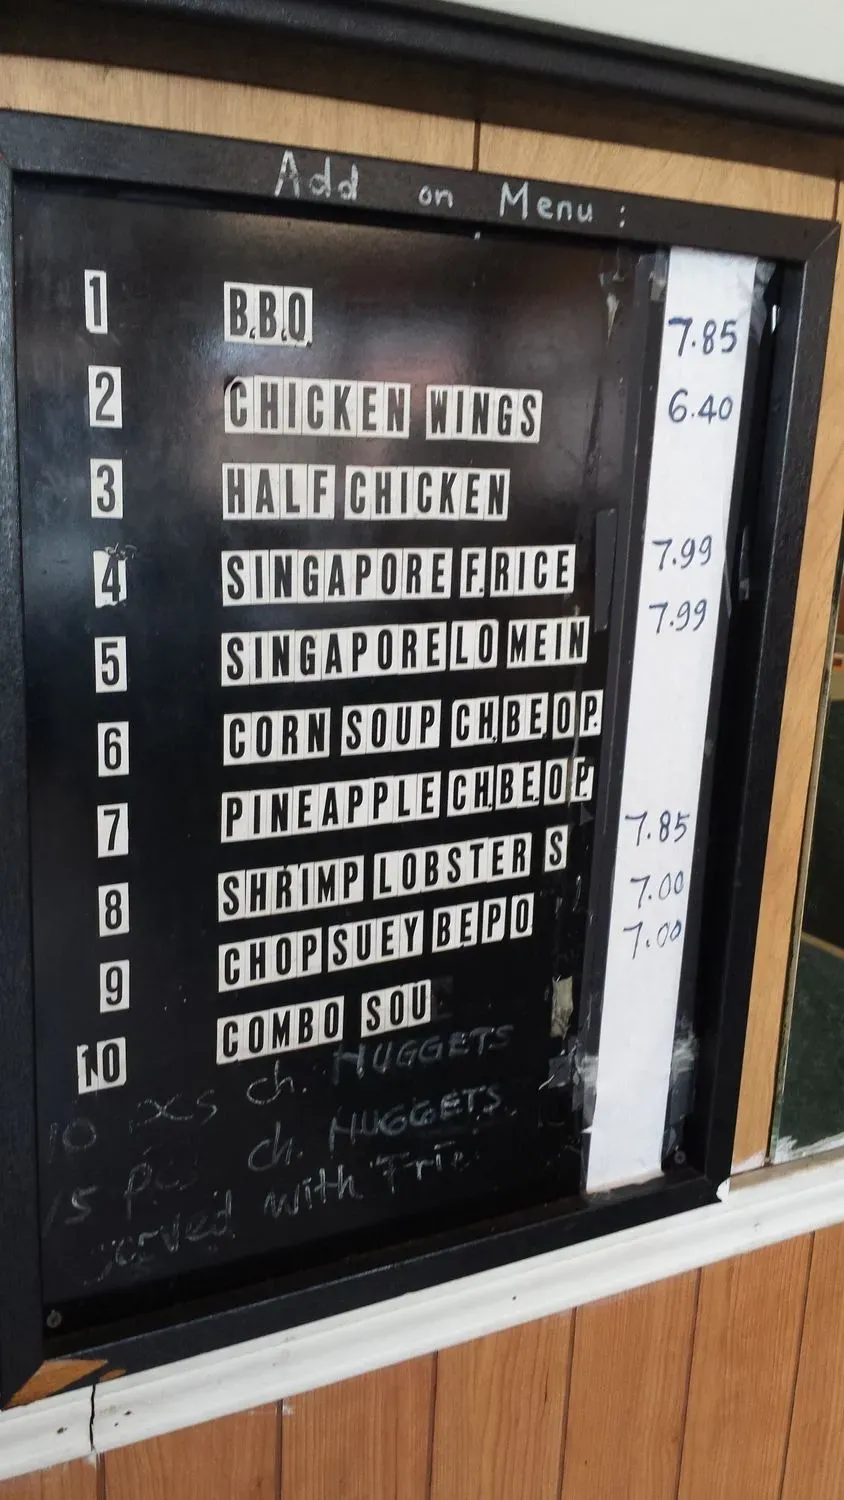 Add on Menu :
1 B.B.Q. 7.85
2 CHICKEN WINGS 6.40
3 HALF CHICKEN
4 SINGAPORE F.RICE 7.99
5 SINGAPORE LO MEIN 7.99
6 CORN SOUP CH,BE,O P.
7 PINEAPPLE CH,BE,O P. 7.85
8 SHRIMP LOBSTER S 7.00
9 CHOP SUEY BE,PO 7.00
10 COMBO SOU
10 ch. NUGGETS
15 ch. NUGGETS
with